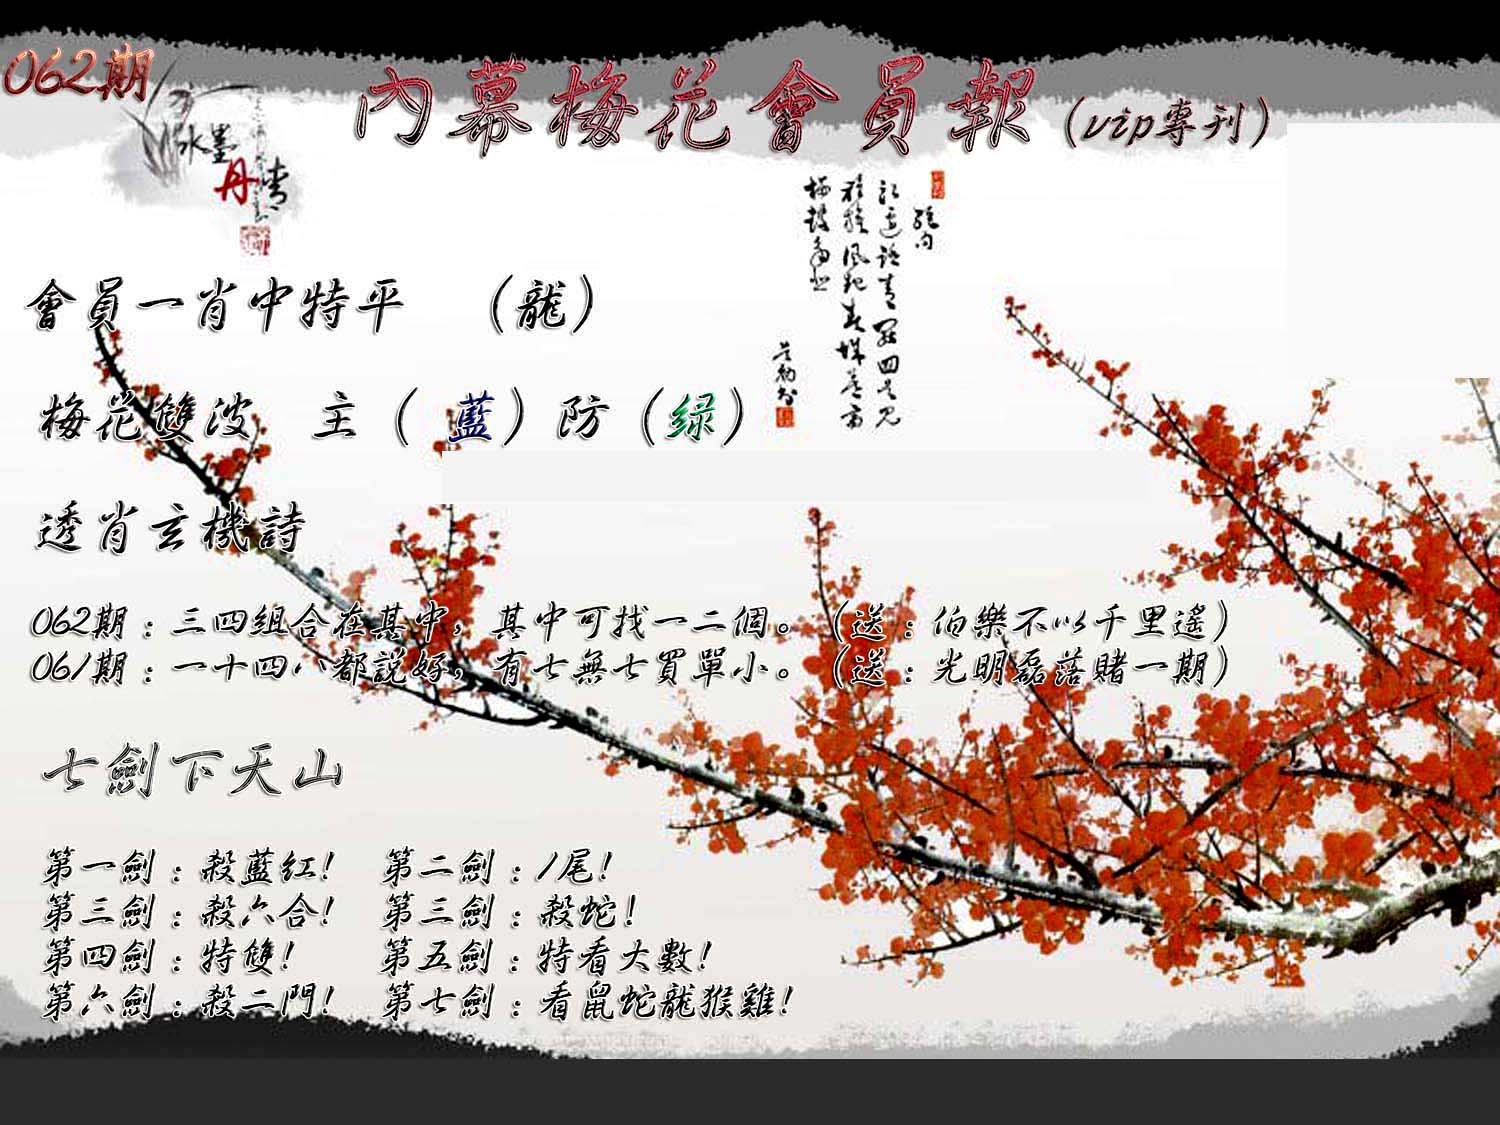 062期
內幕梅花會員報（vip專刊）
水墨
丹青
會員一肖中特平　（龍）
梅花雙波　主（藍）防（绿）
透肖玄機詩
062期：三四組合在其中，其中可找一二個。（送：伯樂不以千里遙）
061期：一十四八都説好，有七無七買單小。（送：光明磊落賭一期）
七劍下天山
第一劍：殺藍紅！　第二劍：1尾！
第三劍：殺六合！　第三劍：殺蛇！
第四劍：特雙！　第五劍：特看大數！
第六劍：殺二門！　第七劍：看鼠蛇龍猴雞！